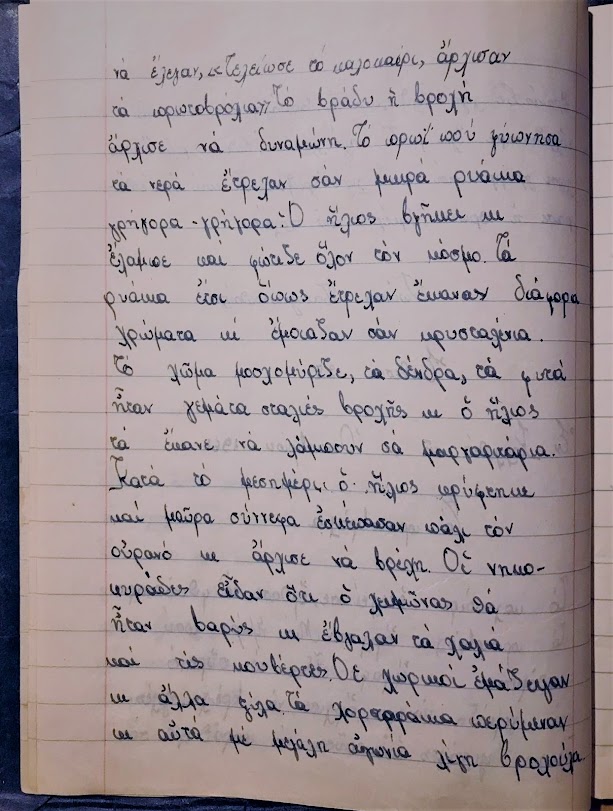 νά ἔλεγαν, «Τελείωσε τό καλοκαίρι, ἄρχισαν
τά πρωτοβρόχια» Τό βράδυ ἡ βροχή
ἄρχισε νά δυναμώνη. Τό πρωΐ πού ξύπνησα
τά νερά ἔτρεχαν σάν μικρά ρυάκια
γρήγορα - γρήγορα. Ὁ ἥλιος βγῆκει κι
ἔλαμψε καί φώτιδε ὅλον τόν κόσμο. Τά
ρυάκια ἔτσι ὅπως ἔτρεχαν ἔκαναν διάφορα
χρώματα κι ἔμοιαδαν σάν κρυσταλένια.
Τό χῶμα μοσχομύριδε, τά δένδρα, τά φυτά
ἦταν γεμάτα σταλιές βροχῆς κι ὁ ἥλιος
τά ἔκανε νά λάμπουν σά μαργαριτάρια.
Κατά τό μεσημέρι ὁ ἥλιος κρύφτηκε
καί μαῦρα σύννεφα ἐσκέπασαν πάλι τόν
οὐρανό κι ἄρχισε νά βρέχη. Οἱ νηκο-
κυράδες εἶδαν ὅτι ὁ χειμῶνας θά
ἦταν βαρύς κι ἔβγαλαν τά χαλιά
καί τίς κουβέρτες. Οἱ χωρικοί ἐμάζεψαν
κι ἄλλα ξύλα. Τά χορταράκια περίμεναν
κι αὐτά με μεγάλη ἀγωνία λίγη βροχούλα.